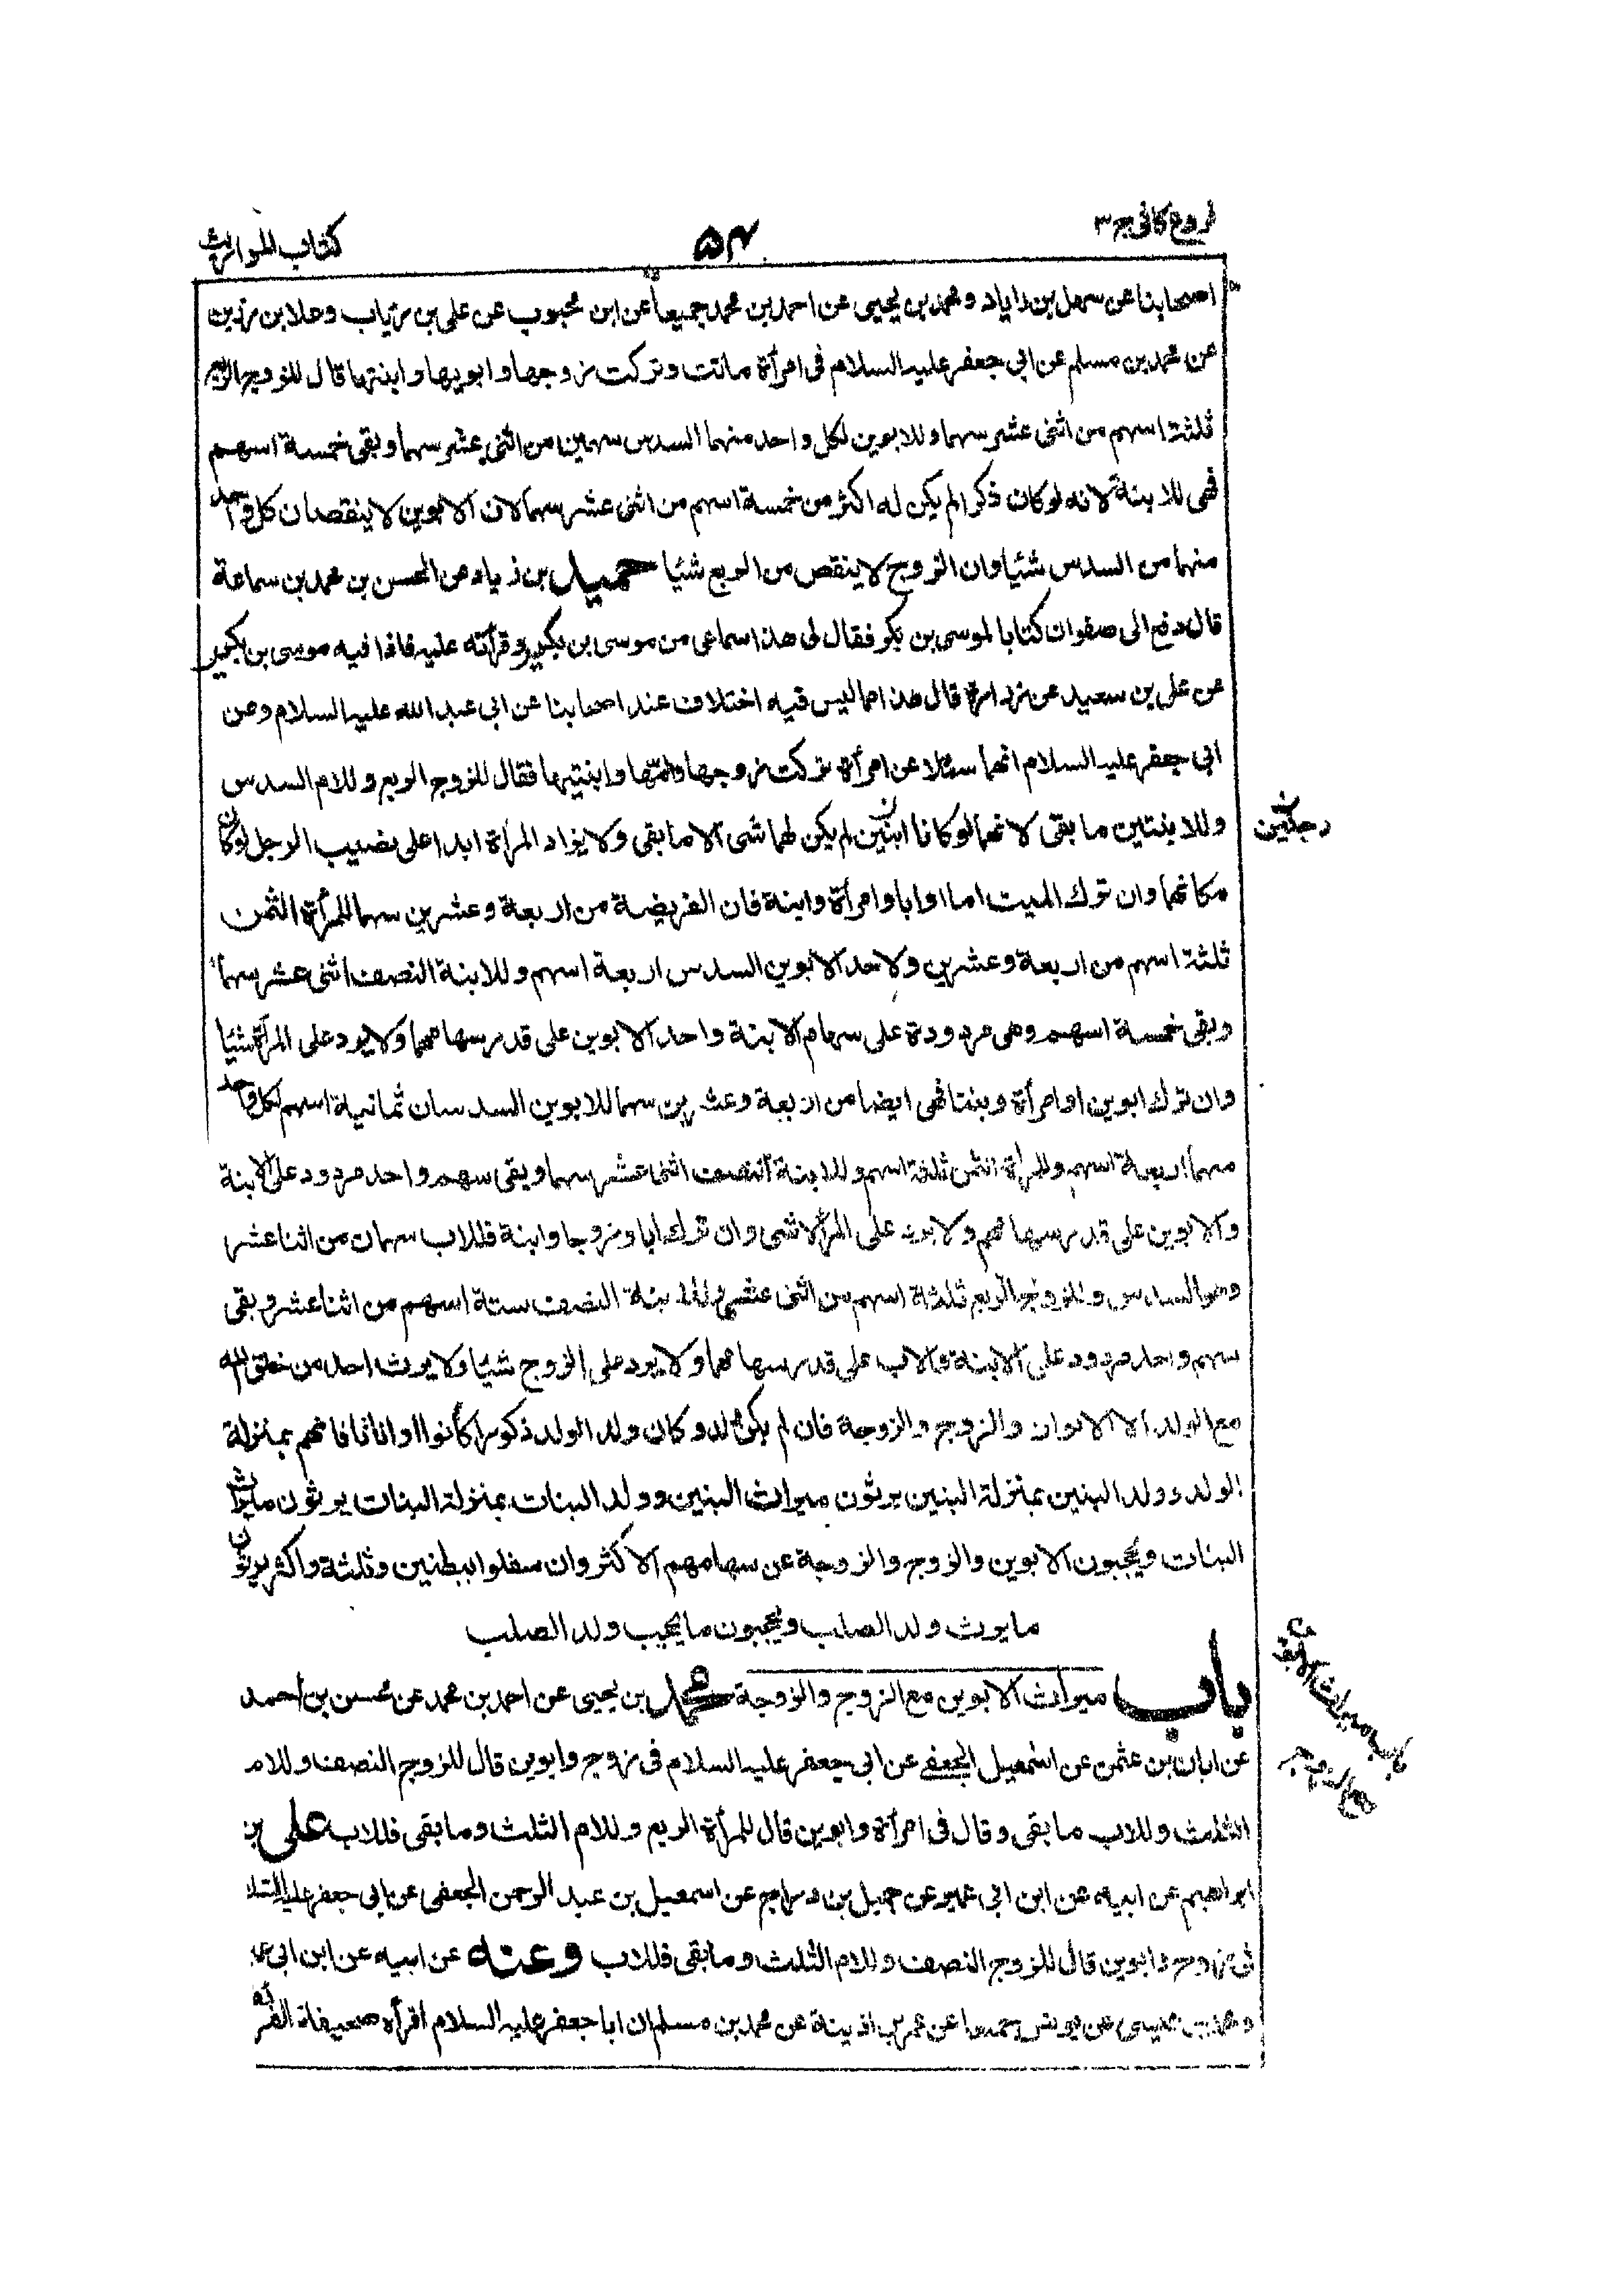 فروع كافى ج٣
٥٤
كتاب المواريث
اصحابنا عن سهل بن زاياد ومحمد بن يحيى عن احمد بن محمد جميعاً عن ابن محبوب عن على بن رئاب وعلا بن رزين
عن محمد بن مسلم عن ابى جعفر عليه السلام فى امرأة ماتت وتركت زوجها وابويها وابنتها قال للزوج الربع
ثلثة اسهم من اثنى عشر سهما وللابوين لكل واحد منهما السدس سهمين من اثنى عشر سهما وبقى خمسة اسهم
فهى للابنة لانه لو كان ذكرا لم يكن له اكثر من خمسة اسهم من اثنى عشر سهما لان الابوين لا ينقصان كل واحد
منهما من السدس شئيا وان الزوج لا ينقص من الربع شئيا حميد بن زياد عن الحسن بن محمد بن سماعة
قال دفع الى صفوان كتابا لموسى بن بكر فقال لى هذا سماعى من موسى بن بكير وقرأته عليه فاذا فيه موسى بن بكير
عن على بن سعيد عن زرارة قال هذا مما ليس فيه اختلاف عند اصحابنا عن ابى عبد الله عليه السلام وعن
ابى جعفر عليه السلام انهما سئلا عن امرأة تركت زوجها وامها وابنتيها فقال للزوج الربع وللام السدس
وللابنتين ما بقى لانهما لو كانا ابنين لم يكن لهما شى الا ما بقى ولا يزاد المرأة ابدا على نصيب الرجل لو كان
رجلين
مكانهما وان ترك الميت اما او ابا وامرأة وابنة فان الفريضة من اربعة وعشرين سهما للمرأة الثمن
ثلثة اسهم من اربعة وعشرين ولاحد الابوين السدس اربعة اسهم وللابنة النصف اثنى عشر سهما
وبقى خمسة اسهم وهى مردودة على سهام الابنة واحد الابوين على قدر سهامهما ولا يرد على المرأة شئيا
وان ترك ابوين او امرأة وبنتا فهى ايضا من اربعة وعشرين سهما للابوين السدسان ثمانية اسهم لكل واحد
منهما اربعة اسهم وللمرأة الثمن ثلثة اسهم وللابنة النصف اثنا عشر سهما وبقى سهم واحد مردود على الابنة
والابوين على قدر سهامهم ولا يرد على المرأة شى وان ترك ابا وزوجا وابنة فللاب سهمان من اثنا عشر
وهو السدس وللزوج الربع ثلثة اسهم من اثنى عشر وللابنة النصف ستة اسهم من اثنا عشر وبقى
سهم واحد مردود على الابنة والاب على قدر سهامهما ولا يرد على الزوج شيئا ولا يرث احد من خلق الله
مع الولد الا الابوان والزوج والزوجة فان لم يكن ولد وكان ولد الولد ذكورا كانوا او اناثا فانهم بمنزلة
الولد وولد البنين بمنزلة البنين يرثون ميراث البنين وولد البنات بمنزلة البنات يرثون ميراث
البنات ويحجبون الابوين والزوج والزوجة عن سهامهم الاكثر وان سفلوا ببطنين وثلثة واكثر يرثون
ما يرث ولد الصلب ويحجبون ما يحجب ولد الصلب
باب ميراث الابوين مع الزوج والزوجة محمد بن يحيى عن احمد بن محمد عن محسن بن أحمد
باب ميراث الابوين
مع الزوج
عن ابان بن عثمن عن اسمعيل الجعفى عن ابى جعفر عليه السلام فى زوج وابوين قال للزوج النصف وللام
الثلث وللاب ما بقى وقال فى امرأة وابوين قال للمرأة الربع وللام الثلث وما بقى فللاب على بن
ابراهيم عن ابيه عن ابن ابى عمير عن جميل بن دراج عن اسمعيل بن عبد الرحمن الجعفى عن ابى جعفر عليه السلا
فى زوج وابوين قال للزوج النصف وللام الثلث وما بقى فللاب وعنه عن ابيه عن ابن ابى عم
ومحمد بن عيسى عن يونس جميعا عن عمر بن اذينة عن محمد بن مسلم ان ابا جعفر عليه السلام اقرأه صحيفة الفرائ